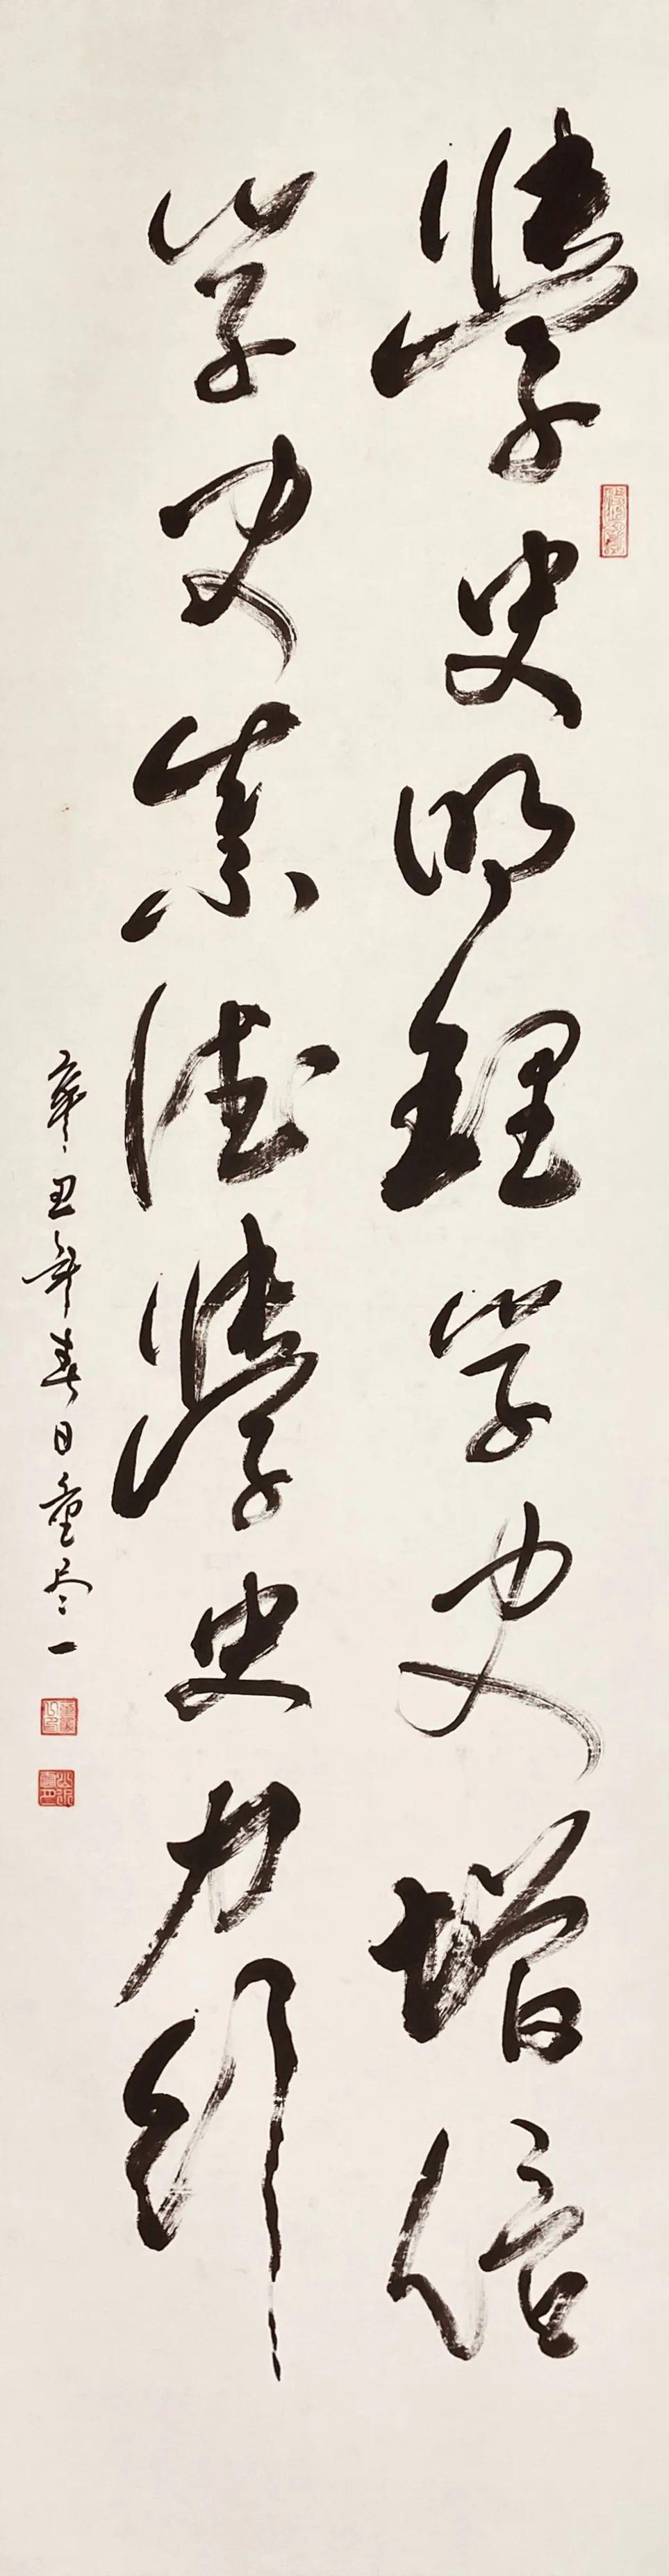 學史明理学史增信
学史崇德學史力行
辛丑年春日童尽一